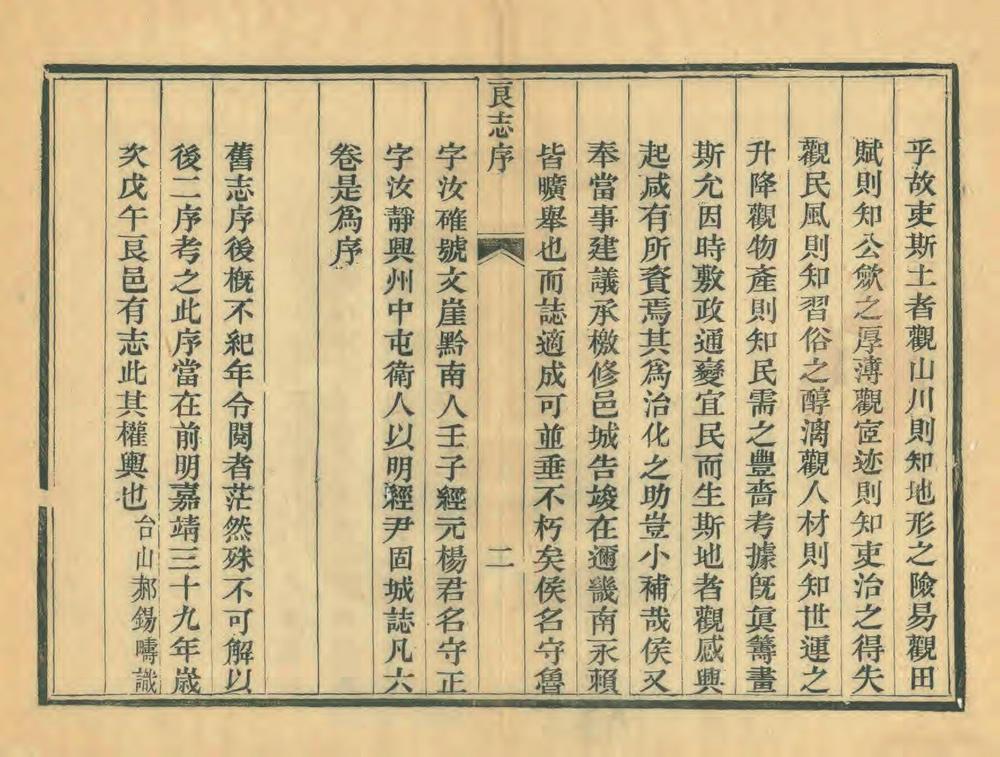 乎故吏斯土者觀山川則知地形之險易觀田
賦則知公歛之厚薄觀宦迹則知吏治之得失
觀民風則知習俗之醇漓觀人材則知世運之
升降觀物產則知民需之豐嗇考據旣眞籌畫
斯允因時敷政通變宜民而生斯地者觀感興
起咸有所資焉其爲治化之助豈小補哉侯又
奉當事建議承檄修邑城告竣在邇畿南永賴
皆曠舉也而誌適成可並垂不朽矣侯名守魯
艮志序
二
字汝確號文崖黔南人壬子經元楊君名守正
字汝靜興州中屯衛人以明經尹固城誌凡六
卷是爲序
舊志序後槪不紀年令閱者茫然殊不可解以
後二序考之此序當在前明嘉靖三十九年歲
次戊午艮邑有志此其權輿也
台山郝錫疇識